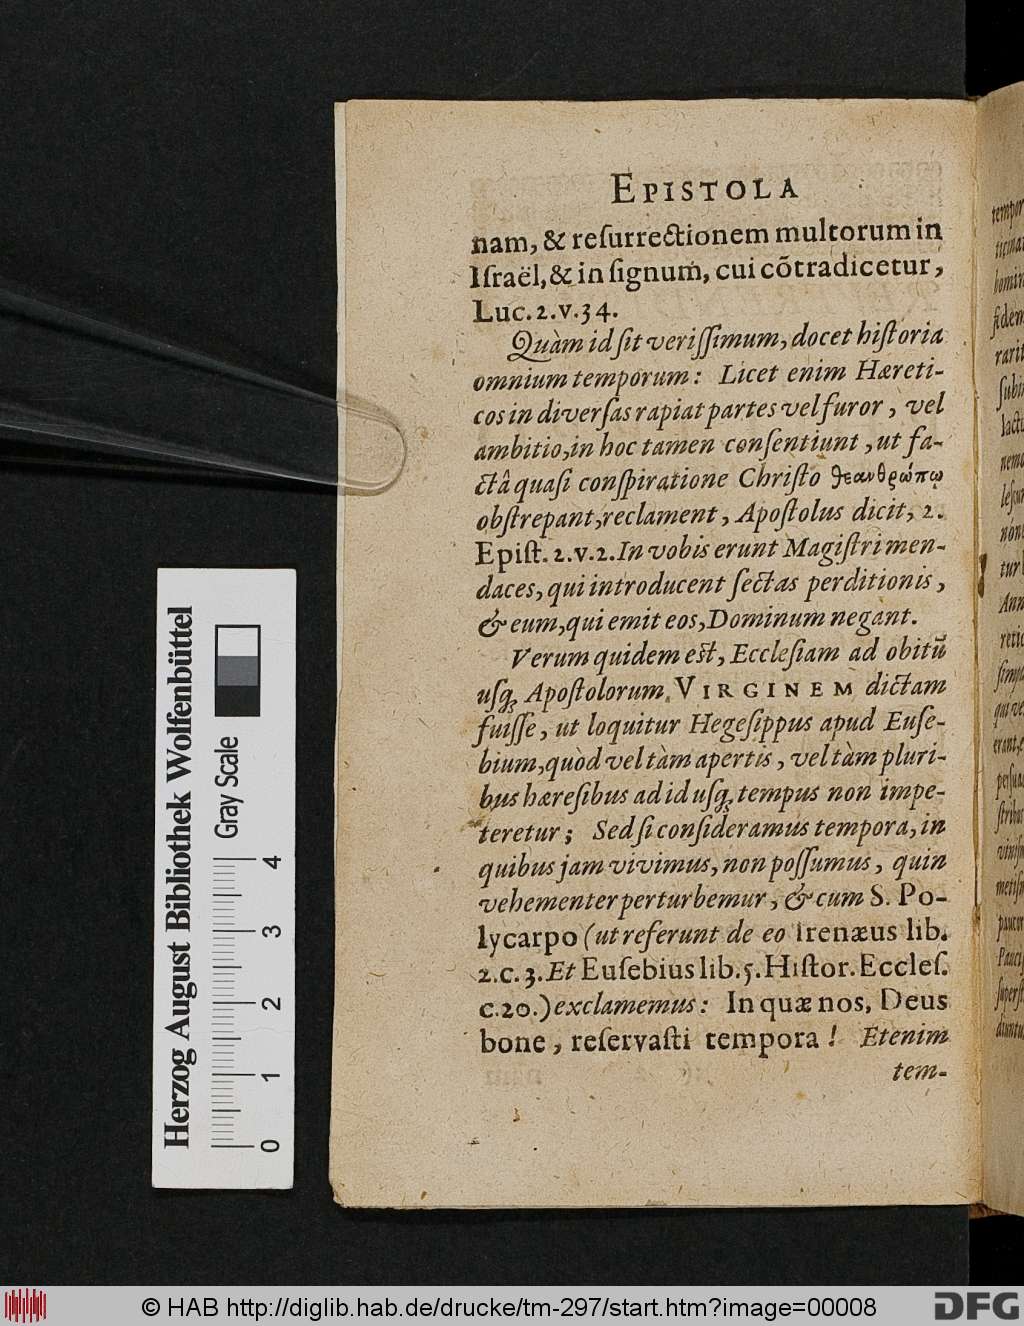 EPISTOLA
nam, & reſurrectionem multorum in
Iſraël, & in ſignum, cui cõtradicetur,
Luc. 2. v. 34.
Quàm id ſit veriſſimum, docet hiſtoria
omnium temporum: Licet enim Hæreti-
cos in diverſas rapiat partes vel furor, vel
ambitio, in hoc tamen conſentiunt, ut fa-
ctâ quaſi conſpiratione Chriſto θεανθρώπῳ
obſtrepant, reclament, Apoſtolus dicit, 2.
Epiſt. 2. v. 2. In vobis erunt Magiſtri men-
daces, qui introducent ſectas perditionis,
& eum, qui emit eos, Dominum negant.
Verum quidem eſt, Eccleſiam ad obitũ
uſq; Apoſtolorum VIRGINEM dictam
fuiſſe, ut loquitur Hegeſippus apud Euſe-
bium, quòd vel tàm apertis, vel tàm pluri-
bus hæreſibus ad id uſq; tempus non impe-
teretur; Sed ſi conſideramus tempora, in
quibus jam vivimus, non poſſumus, quin
vehementer perturbemur, & cum S. Po-
lycarpo (ut referunt de eo Irenæus lib.
2. c. 3. Et Euſebius lib. 5. Hiſtor. Eccleſ.
c. 20.) exclamemus: In quæ nos, Deus
bone, reſervaſti tempora! Etenim
tem-
Herzog August Bibliothek Wolfenbüttel
Gray Scale
0 1 2 3 4
© HAB http://diglib.hab.de/drucke/tm-297/start.htm?image=00008
DFG